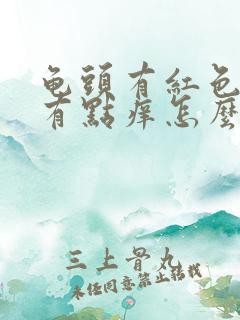 龟頭有紅色
有點痒怎麼
三上骨丸
未经同意禁止转载